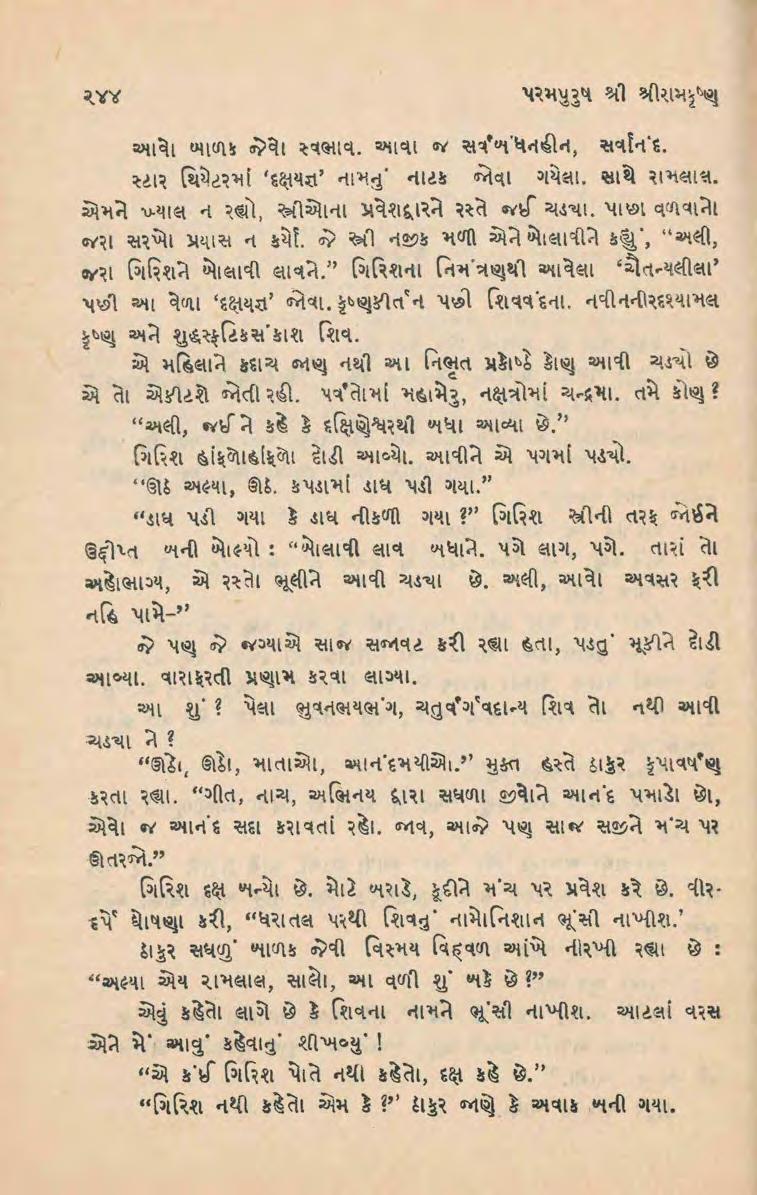 ૨૪૪ પરમપુરુષ શ્રી શ્રીરામકૃષ્ણ
આવો બાળક જેવો સ્વભાવ. આવા જ સર્વબંધનહીન, સર્વાનંદ.
સ્ટાર થિયેટરમાં ‘દક્ષયજ્ઞ’ નામનું નાટક જોવા ગયેલા. સાથે રામલાલ.
એમને ખ્યાલ ન રહ્યો, સ્ત્રીઓના પ્રવેશદ્વારને રસ્તે જઈ ચડ્યા. પાછા વળવાનો
જરા સરખો પ્રયાસ ન કર્યો. જે સ્ત્રી નજીક મળી એને બોલાવીને કહ્યું, “અલી,
જરા ગિરિશને બોલાવી લાવને.” ગિરિશના નિમંત્રણથી આવેલા ‘ચૈતન્યલીલા’
પછી આ વેળા ‘દક્ષયજ્ઞ’ જોવા. કૃષ્ણકીર્તન પછી શિવવંદના. નવીનનીરદશ્યામલ
કૃષ્ણ અને શુદ્ધસ્ફટિકસંકાશ શિવ.
એ મહિલાને કદાચ જાણ નથી આ નિભૃત પ્રકોષ્ઠે કોણ આવી ચડ્યો છે
એ તો એકીટશે જોતી રહી. પર્વતોમાં મહામેરુ, નક્ષત્રોમાં ચન્દ્રમા. તમે કોણ ?
“અલી, જઈ ને કહે કે દક્ષિણેશ્વરથી બધા આવ્યા છે.”
ગિરિશ હાંફળોહાંફળો દોડી આવ્યો. આવીને એ પગમાં પડ્યો.
“ઊઠ અલ્યા, ઊઠ. કપડામાં ડાઘ પડી ગયા.”
“ડાઘ પડી ગયા કે ડાઘ નીકળી ગયા ?” ગિરિશ સ્ત્રીની તરફ જોઈને
ઉદ્દીપ્ત બની બોલ્યો : “બોલાવી લાવ બધાને. પગે લાગ, પગે. તારાં તો
અહોભાગ્ય, એ રસ્તો ભૂલીને આવી ચડ્યા છે. અલી, આવો અવસર ફરી
નહિ પામે–”
જે પણ જે જગ્યાએ સાજ સજાવટ કરી રહ્યા હતા, પડતું મૂકીને દોડી
આવ્યા. વારાફરતી પ્રણામ કરવા લાગ્યા.
આ શું ? પેલા ભુવનભયભંગ, ચતુર્વર્ગવદાન્ય શિવ તો નથી આવી
ચડ્યા ને ?
“ઊઠો, ઊઠો, માતાઓ, આનંદમયીઓ.” મુક્ત હસ્તે ઠાકુર કૃપાવર્ષણ
કરતા રહ્યા. “ગીત, નાચ, અભિનય દ્વારા સઘળા જીવોને આનંદ પમાડો છો,
એવો જ આનંદ સદા કરાવતાં રહો. જાવ, આજે પણ સાજ સજીને મંચ પર
ઊતરજો.”
ગિરિશ દક્ષ બન્યો છે. મોટે બરાડે, કૂદીને મંચ પર પ્રવેશ કરે છે. વીર-
દર્પે ઘોષણા કરી, “ધરાતલ પરથી શિવનું નામોનિશાન ભૂંસી નાખીશ.’
ઠાકુર સઘળું બાળક જેવી વિસ્મય વિહ્‌વળ આંખે નીરખી રહ્યા છે :
“અલ્યા એય રામલાલ, સાલો, આ વળી શું બકે છે ?”
એવું કહેતો લાગે છે કે શિવના નામને ભૂંસી નાખીશ. આટલાં વરસ
એને મેં આવું કહેવાનું શીખવ્યું !
“એ કંઈ ગિરિશ પોતે નથી કહેતો, દક્ષ કહે છે.”
“ગિરિશ નથી કહેતો એમ કે ?” ઠાકુર જાણે કે અવાક બની ગયા.